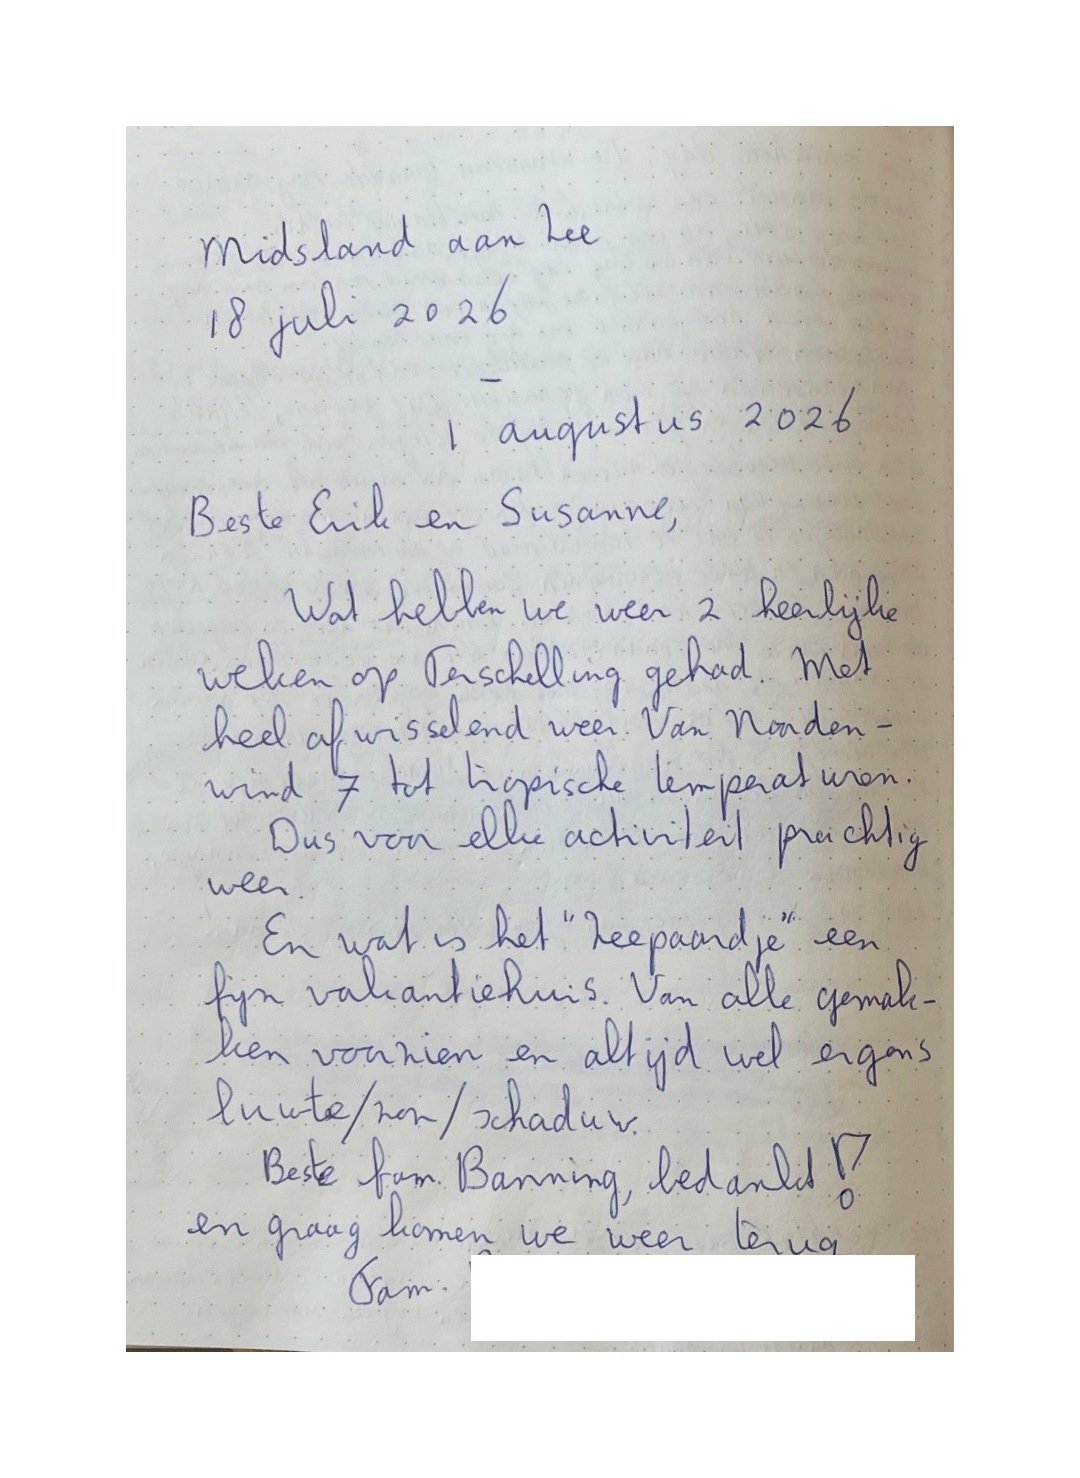 Midsland aan Zee
18 juli 2026
–
1 augustus 2026
Beste Erik en Susanne,
Wat hebben we weer 2 heerlijke
weken op Terschelling gehad. Met
heel afwisselend weer. Van Noorden-
wind 7 tot tropische temperaturen.
Dus voor elke activiteit prachtig
weer.
En wat is het "Zeepaardje" een
fijn vakantiehuis. Van alle gemak-
ken voorzien en altijd wel ergens
luwte/zon/schaduw.
Beste fam. Banning, bedankt!
en graag komen we weer terug
Fam.